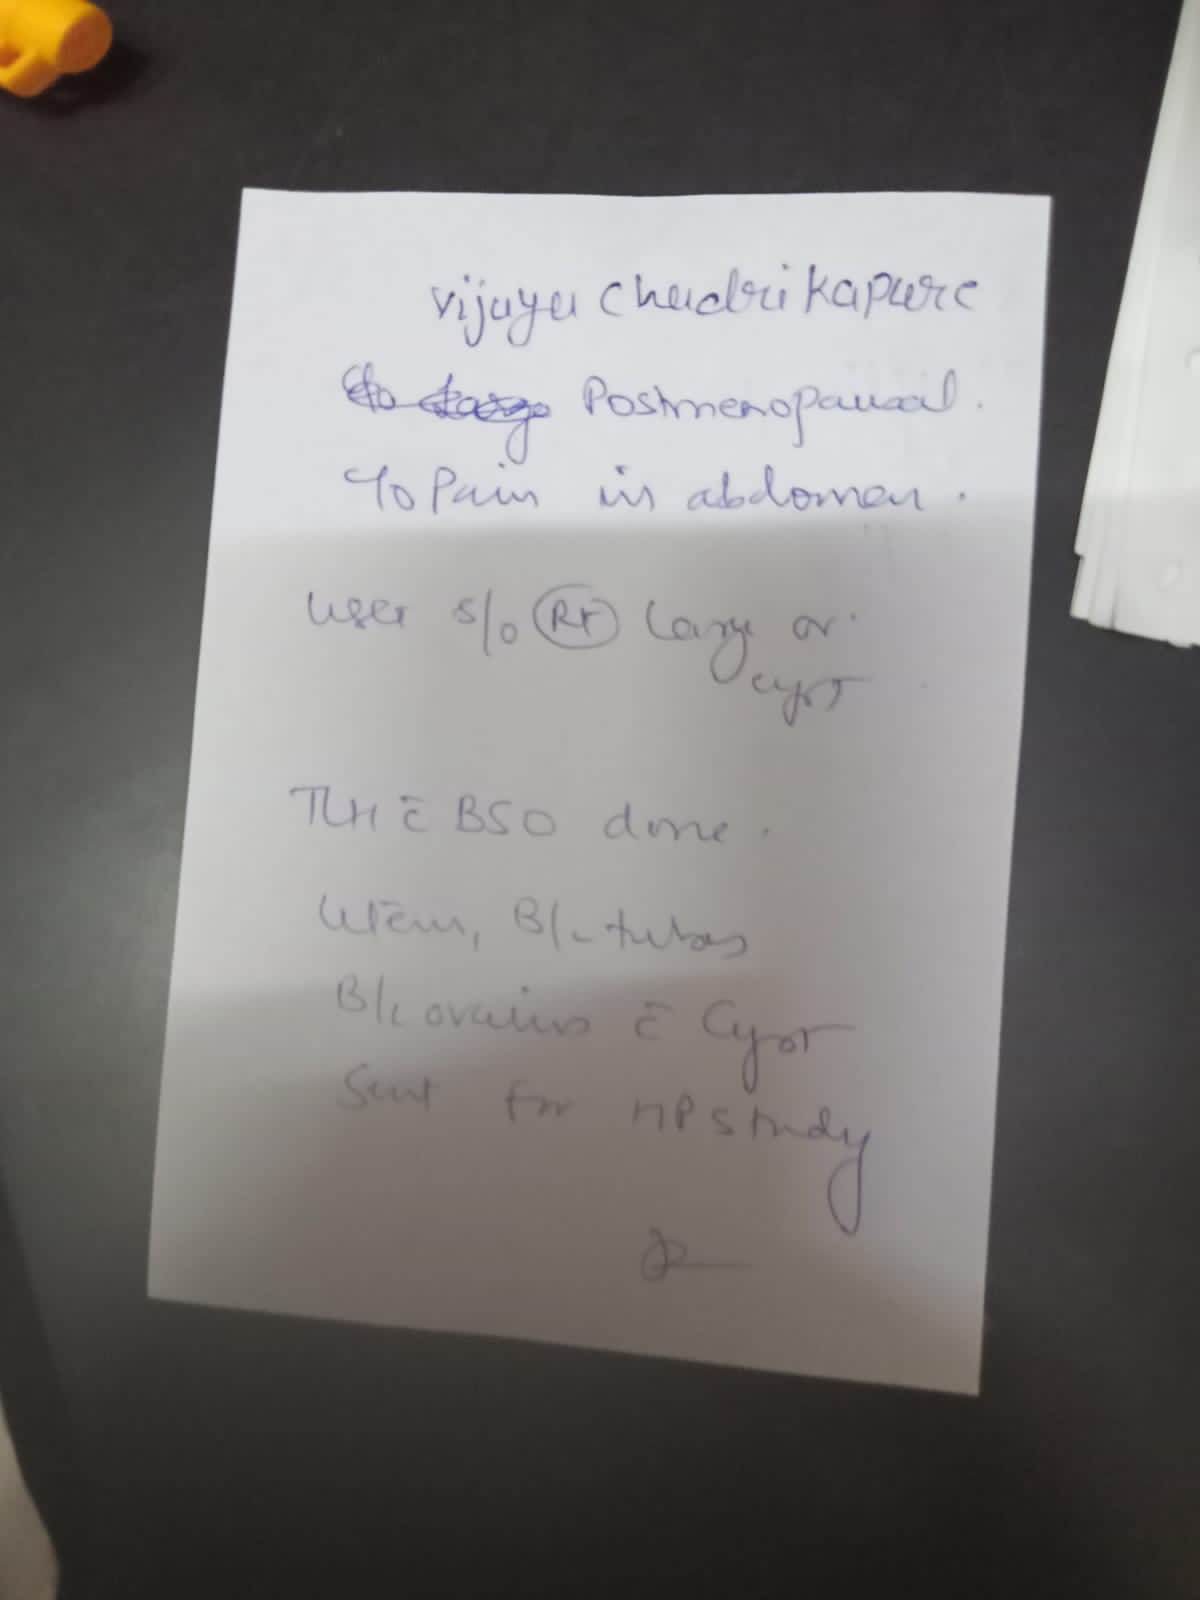 vijaya Chadrikapure
Postmenopausal.
c/o Pain in abdomen.
USG s/o Rt large ov.
cyst
TLH c̄ BSO done.
Uterus, B/L tubes
B/L ovaries c̄ Cyst
Sent for HP study